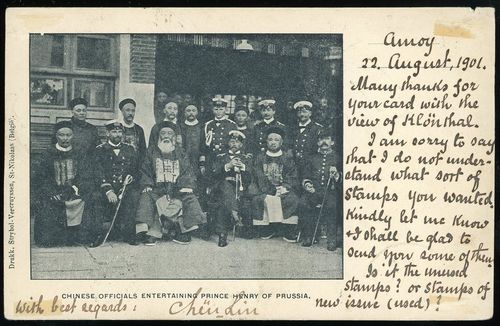 Amoy
22. August, 1901.
Many thanks for
your card with the
view of Klönthal.
I am sorry to say
that I do not under-
stand what sort of
stamps you wanted.
Kindly let me know
& I shall be glad to
send you some of them
Is it the unused
stamps? or stamps of
new issue (used)?
with best regards:
CHINESE OFFICIALS ENTERTAINING PRINCE HENRY OF PRUSSIA,
Drukk. Strybol-Veeruyssen, St-Nikolaas (België).